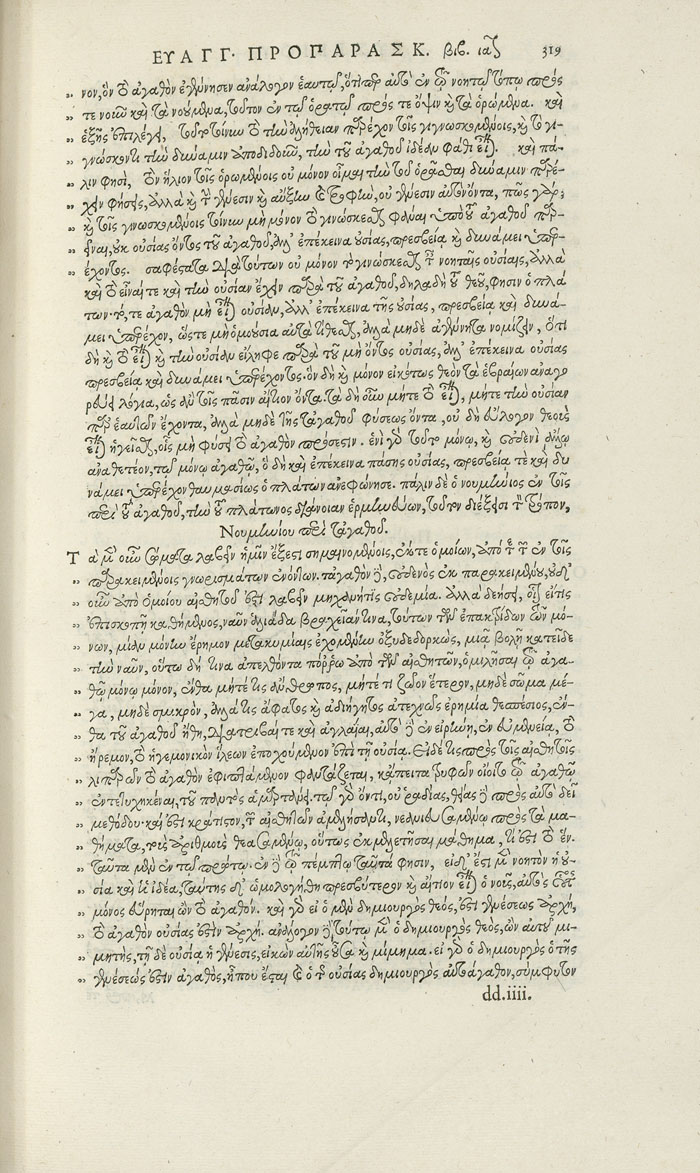 ΕΥΑΓΓ· ΠΡΟΠΑΡΑΣΚ. βιβ. ια 319
νον, ὃν τὸ ἀγαθὸν ἐγέννησεν ἀνάλογον ἑαυτῷ, ὅτιπερ αὐτὸ ἐν τῷ νοητῷ τόπῳ πρός
τε νοῦν καὶ τὰ νοούμενα, τοῦτον ἐν τῷ ὁρατῷ πρός τε ὄψιν κ̀ τὰ ὁρώμενα. καὶ
ἑξῆς ἐπιλέγει, τοῦτο τοίνυν τὸ τὴν ἀλήθειαν παρέχον τοῖς γιγνωσκομένοις, κ̀ τῷ γι-
γνώσκοντι τὴν δύναμιν ἀποδιδοῦν, τὴν τοῦ ἀγαθοῦ ἰδέαν φάθι εἶναι. καὶ πά-
λιν φησὶ, τὸν ἥλιον τοῖς ὁρωμένοις οὐ μόνον οἶμαι τὴν τοῦ ὁρᾶσθαι δύναμιν παρέ-
χειν φήσεις, ἀλλὰ κ̀ τὴν γένεσιν κ̀ αὔξην κ̀ τροφὴν, οὐ γένεσιν αὐτὸν ὄντα, πῶς γάρ;
κ̀ τοῖς γινωσκομένοις τοίνυν μὴ μόνον τὸ γινώσκεσθαι φάναι ὑπὸ τοῦ ἀγαθοῦ παρ-
εῖναι, οὐκ οὐσίας ὄντος τοῦ ἀγαθοῦ, ἀλλ' ἐπέκεινα οὐσίας, πρεσβείᾳ κ̀ δυνάμει ὑπερ-
έχοντος. σαφέστατα διὰ τούτων οὐ μόνον τὸ γινώσκεσθαι τὰς νοητὰς οὐσίας, ἀλλὰ
καὶ τὸ εἶναί τε καὶ τὴν οὐσίαν ἔχειν παρὰ τοῦ ἀγαθοῦ, δηλαδὴ τοῦ θεοῦ, φησὶν ὁ πλά
των· τό, τε ἀγαθὸν μὴ εἶναι οὐσίαν, ἀλλ' ἐπέκεινα τῆς οὐσίας, πρεσβείᾳ καὶ δυνά-
μει ὑπερέχον, ὥστε μὴ ὁμοούσια αὐτὰ τίθεσθαι, ἀλλὰ μηδὲ ἀγέννητα νομίζειν, ὅτι
δὴ κ̀ τὸ εἶναι κ̀ τὴν οὐσίαν εἴληφε παρὰ τοῦ μὴ ὄντος οὐσίας, ἀλλ' ἐπέκεινα οὐσίας
πρεσβείᾳ καὶ δυνάμει ὑπερέχοντος· ὃν δὴ κ̀ μόνον εἰκότως θεὸν τὰ ἑβραίων ἀναγο
ρεύει λόγια, ὡς ἂν τοῖς πᾶσιν αἴτιον ὄντα. τὰ δὴ οὖν μήτε τὸ εἶναι, μήτε τὴν οὐσίαν
παρ' ἑαυτῶν ἔχοντα, ἀλλὰ μηδὲ τῆς τἀγαθοῦ φύσεως ὄντα, οὐ δὴ εὔλογον θεοὺς
εἶναι ἡγεῖσθαι, οἷς μὴ φύσει τὸ ἀγαθὸν πρόσεστιν. ἑνὶ γὰρ τοῦτο μόνῳ, κ̀ οὐδενὶ ἄλλῳ
ἀναθετέον, τῷ μόνῳ ἀγαθῷ, ὃ δὴ καὶ ἐπέκεινα πάσης οὐσίας, πρεσβείᾳ τὲ καὶ δυ
νάμει ὑπερέχον θαυμασίως ὁ πλάτων ἀνεφώνησε. πάλιν δὲ ὁ νουμήνιος ἐν τοῖς
περὶ τοῦ ἀγαθοῦ, τὴν τοῦ πλάτωνος διάνοιαν ἑρμηνεύων, τοῦτον διέξεισι τὸν τρόπον,
Νουμηνίου περὶ τἀγαθοῦ.
Τ ὰ μὲν οὖν σώματα λαβεῖν ἡμῖν ἔξεστι σημαινομένοις, ἔκ τε ὁμοίων, ἀπό τε τῶν ἐν τοῖς
παρακειμένοις γνωρισμάτων ἐνόντων. τἀγαθὸν δὲ, οὐδενὸς ἐκ παρακειμένου, οὐδ'
οὖν ἀπὸ ὁμοίου αἰσθητοῦ ἐστὶ λαβεῖν μηχανή τις οὐδεμία. ἀλλὰ δεήσει, οἷον εἴτις
ἐπισκοπῇ καθήμενος, ναῦν ἁλιάδα βραχεῖάν τινα, τούτων τῶν ἐπακτρίδων τῶν μό-
νων, μίαν μόνην ἔρημον μετακυμίαις ἐχομένην ὀξυδεδορκὼς, μιᾷ βολῇ κατεῖδε
τὴν ναῦν, οὕτω δή τινα ἀπελθόντα πόρρω ἀπὸ τῶν αἰσθητῶν, ὁμιλῆσαι τῷ ἀγα-
θῷ μόνῳ μόνον, ἔνθα μήτέ τις ἄνθρωπος, μήτέ τι ζῶον ἕτερον, μηδὲ σῶμα μέ-
γα, μηδὲ σμικρὸν, ἀλλά τις ἄφατος κ̀ ἀδιήγητος ἀτεχνῶς ἐρημία θεσπέσιος, ἔν-
θα τοῦ ἀγαθοῦ ἤθη, διατριβαί τε καὶ ἀγλαΐαι, αὐτὸ δὲ ἐν εἰρήνῃ, ἐν εὐμενείᾳ, τὸ
ἤρεμον, τὸ ἡγεμονικὸν ἵλεων ἐποχούμενον ἐπὶ τῇ οὐσίᾳ. Εἰ δέ τις πρὸς τοῖς αἰσθητοῖς
λιπαρῶν τὸ ἀγαθὸν ἐφιπτάμενον φαντάζεται, κἄπειτα τρυφῶν οἴοιτο τῷ ἀγαθῷ
ἐντετυχηκέναι, τοῦ παντὸς ἁμαρτάνει. τῷ γὰρ ὄντι, οὐ ῥαδίας, θείας δὲ πρὸς αὐτὸ δεῖ
μεθόδου· καὶ ἔστι κράτιστον, τῶν αἰσθητῶν ἀμελήσαντι, νεανιευσαμένῳ πρὸς τὰ μα-
θήματα, τοὺς ἀριθμοὺς θεασαμένῳ, οὕτως ἐκμελετῆσαι μάθημα, τί ἐστι τὸ ἕν.
Ταῦτα μὲν ἐν τῷ πρώτῳ· ἐν δὲ τῷ πέμπτῳ ταῦτά φησιν, εἰ δ' ἔστι μὲν νοητὸν ἡ οὐ-
σία καὶ ἡ ἰδέα, ταύτης δ' ὡμολογήθη πρεσβύτερον κ̀ αἴτιον εἶναι ὁ νοῦς, αὐτὸς οὗτος
μόνος εὕρηται ὢν τὸ ἀγαθόν. καὶ γὰρ εἰ ὁ μὲν δημιουργὸς θεὸς, ἐστὶ γενέσεως ἀρχὴ,
τὸ ἀγαθὸν οὐσίας ἐστὶν ἀρχή. ἀνάλογον δὲ τούτῳ μὲν ὁ δημιουργὸς θεὸς, ὢν αὐτοῦ μι-
μητὴς, τῇ δὲ οὐσίᾳ ἡ γένεσις, εἰκὼν αὐτῆς οὖσα κ̀ μίμημα. εἰ γὰρ ὁ δημιουργὸς ὁ τῆς
γενέσεώς ἐστιν ἀγαθὸς, ἦπου ἔσται κ̀ ὁ τῆς οὐσίας δημιουργὸς αὐτὸ ἀγαθον, σύμφυτον
dd.iiii.